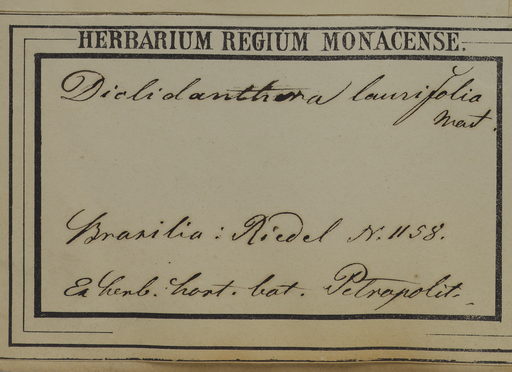 HERBARIUM REGIUM MONACENSE.
Diclidanthera laurifolia
Mart.
Brasilia : Riedel N. 1158.
Ex herb. hort. bot. Petropolit.